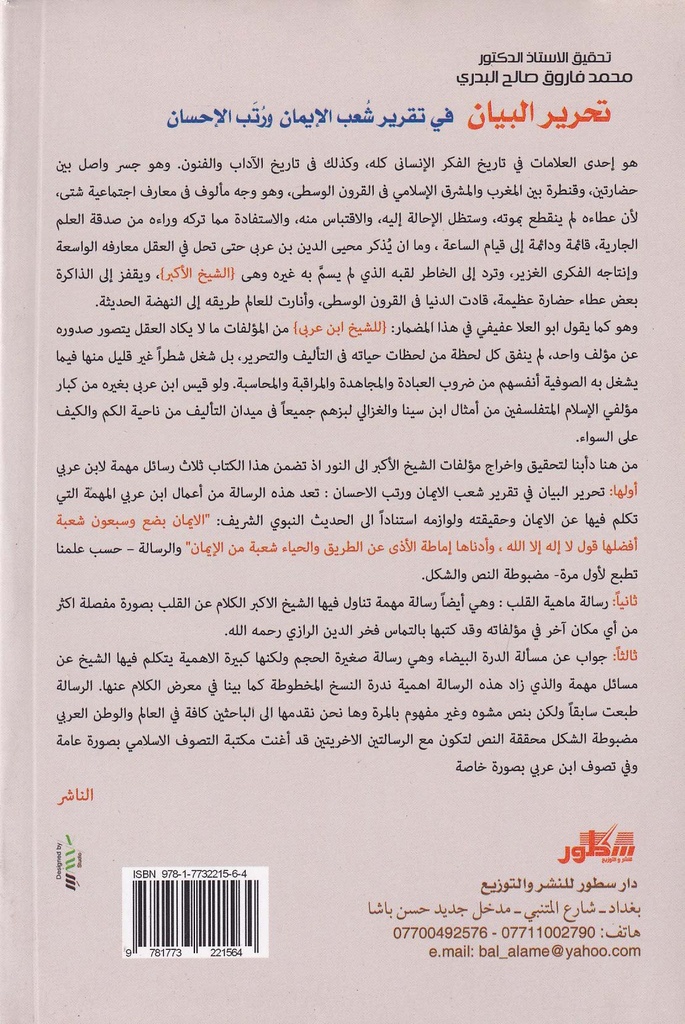 تحقيق الاستاذ الدكتور
محمد فاروق صالح البدري
تحرير البيان في تقرير شُعب الإيمان ورُتَب الإحسان
هو إحدى العلامات في تاريخ الفكر الإنسانى كله، وكذلك فى تاريخ الآداب والفنون. وهو جسر واصل بين
حضارتين، وقنطرة بين المغرب والمشرق الإسلامي فى القرون الوسطى، وهو وجه مألوف فى معارف اجتماعية شتى،
لأن عطاءه لم ينقطع بموته، وستظل الإحالة إليه، والاقتباس منه، والاستفادة مما تركه وراءه من صدقة العلم
الجارية، قائمة ودائمة إلى قيام الساعة ، وما ان يُذكر محيى الدين بن عربى حتى تحل في العقل معارفه الواسعة
وإنتاجه الفكرى الغزير، وترد إلى الخاطر لقبه الذي لم يسمَّ به غيره وهى {الشيخ الأكبر}، ويقفز إلى الذاكرة
بعض عطاء حضارة عظيمة، قادت الدنيا فى القرون الوسطى، وأنارت للعالم طريقه إلى النهضة الحديثة.
وهو كما يقول ابو العلا عفيفي في هذا المضمار: {للشيخ ابن عربى} من المؤلفات ما لا يكاد العقل يتصور صدوره
عن مؤلف واحد، لم ينفق كل لحظة من لحظات حياته فى التأليف والتحرير، بل شغل شطراً غير قليل منها فيما
يشغل به الصوفية أنفسهم من ضروب العبادة والمجاهدة والمراقبة والمحاسبة. ولو قيس ابن عربى بغيره من كبار
مؤلفي الإسلام المتفلسفين من أمثال ابن سينا والغزالي لبزهم جميعاً فى ميدان التأليف من ناحية الكم والكيف
على السواء.
من هنا دأبنا لتحقيق واخراج مؤلفات الشيخ الأكبر الى النور اذ تضمن هذا الكتاب ثلاث رسائل مهمة لابن عربي
أولها: تحرير البيان في تقرير شعب الايمان ورتب الاحسان : تعد هذه الرسالة من أعمال ابن عربي المهمّة التي
تكلم فيها عن الايمان وحقيقته ولوازمه استناداً الى الحديث النبوي الشريف: "الايمان بضع وسبعون شعبة
أفضلها قول لا إله إلا الله ، وأدناها إماطة الأذى عن الطريق والحياء شعبة من الإيمان" والرسالة – حسب علمنا
تطبع لأول مرة- مضبوطة النص والشكل.
ثانياً: رسالة ماهية القلب : وهي أيضاً رسالة مهمة تناول فيها الشيخ الاكبر الكلام عن القلب بصورة مفصلة اكثر
من أي مكان آخر في مؤلفاته وقد كتبها بالتماس فخر الدين الرازي رحمه الله.
ثالثاً: جواب عن مسألة الدرة البيضاء وهي رسالة صغيرة الحجم ولكنها كبيرة الاهمية يتكلم فيها الشيخ عن
مسائل مهمة والذي زاد هذه الرسالة اهمية ندرة النسخ المخطوطة كما بينا في معرض الكلام عنها. الرسالة
طبعت سابقاً ولكن بنص مشوه وغير مفهوم بالمرة وها نحن نقدمها الى الباحثين كافة في العالم والوطن العربي
مضبوطة الشكل محققة النص لتكون مع الرسالتين الاخريتين قد أغنت مكتبة التصوف الاسلامي بصورة عامة
وفي تصوف ابن عربي بصورة خاصة
الناشر
Designed by:
Studio
ISBN 978-1-7732215-6-4
9 781773 221564
سطور
للنشر والتوزيع
دار سطور للنشر والتوزيع
بغداد - شارع المتنبي - مدخل جديد حسن باشا
هاتف: 07711002790 - 07700492576
e.mail: bal_alame@yahoo.com